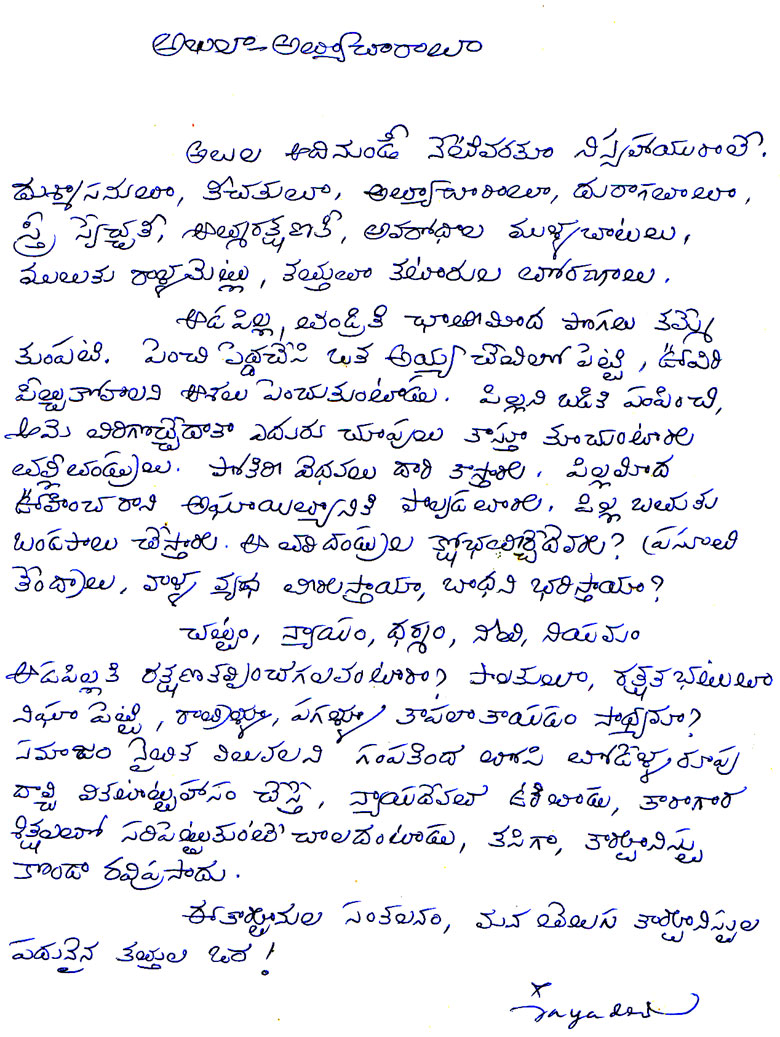 అబలా-అత్యాచారాలూ
అబల ఆదినుండీ నేటివరకూ నిస్సహాయురాలే.
దుశ్శాసనులూ, కీచకులూ, అత్యాచారాలూ, దురాగతాలూ,
స్త్రీ స్వేచ్ఛకీ, ఆత్మరక్షణకీ, అవరోధాల ముళ్ళబాటలు,
ములుకు రాళ్ళమెట్లు, కత్తులూ కటారుల తోరణాలు.
ఆడపిల్ల, తండ్రికి ఛాతీమీద పొగలు కమ్మే
కుంపటి. పెంచి పెద్దచేసి ఒక అయ్య చేతిలో పెట్టి, ఊపిరి
పీల్చుకోవాలని ఆశలు పెంచుకుంటాడు. పిల్లని బడికి పంపించి,
ఆమె తిరిగొచ్చేదాకా ఎదురు చూపులు కాస్తూ కూచుంటారు
తల్లీతండ్రులు. పోకిరీ వెధవలు దారి కాస్తారు. పిల్లమీద
ఊహించరాని అఘాయిత్యానికి పాల్పడతారు. పిల్ల బతుకు
బండపాలు చేస్తారు. ఆ తలిదండ్రుల క్షోభతీర్చేదెవరు? ప్రసూతి
కేంద్రాలు, వాళ్ళ వ్యధ తీరుస్తాయా, బాధని భరిస్తాయా?
చట్టం, న్యాయం, ధర్మం, నీతి, నియమం
ఆడపిల్లకి రక్షణకల్పించగలవంటారా? పాలకులూ, రక్షకభటులూ
నిఘా పెట్టి, రాత్రిళ్ళూ, పగళ్ళూ కాపలాకాయడం సాధ్యమా?
సమాజం నైతిక విలువలని గంపకింద తోసి తోడేళ్ళ రూపు
దాల్చి వికటాట్టహాసం చేస్తే, న్యాయదేవత ఉరితాడు, కారాగార
శిక్షలతో సరిపెట్టుకుంటే చాలదంటాడు, కసిగా, కార్టూనిస్టు
కొండా రవిప్రసాదు.
ఈకార్టూనుల సంకలనం, మన తెలుగు కార్టూనిస్టుల
పదునైన కత్తుల ఒర!
Jayadev